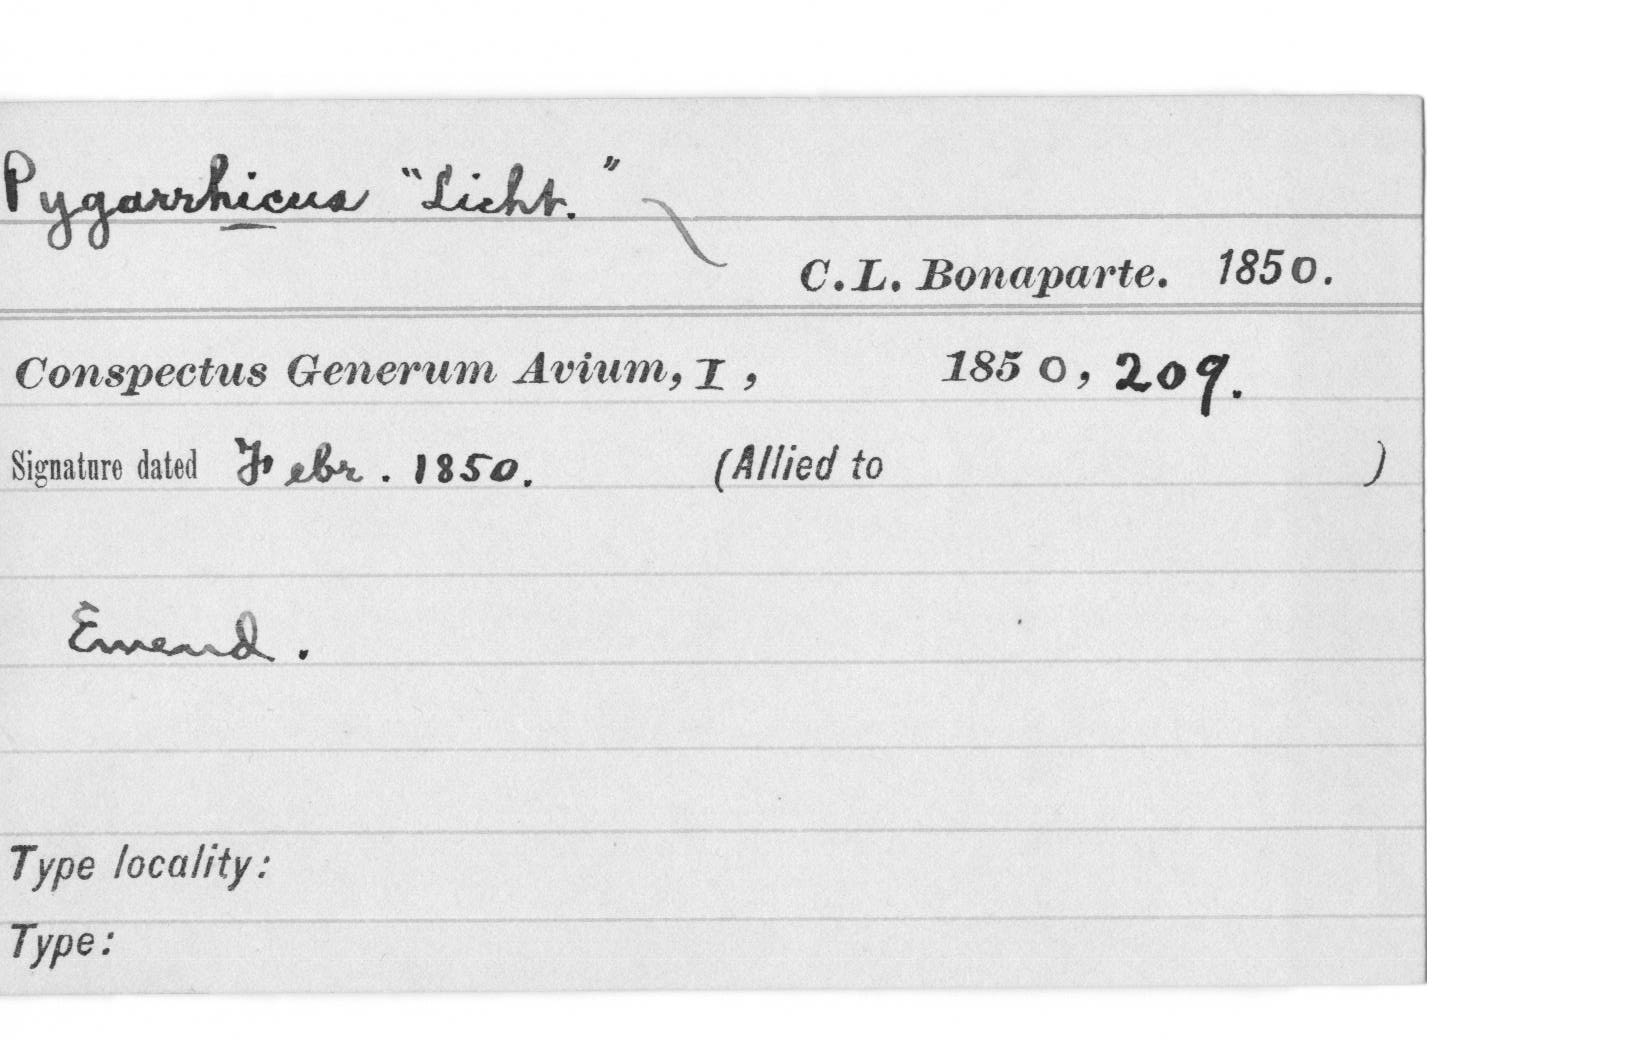 Pygarrhicus "Licht."
C.L. Bonaparte. 1850.
Conspectus Generum Avium, I, 1850, 209.
Signature dated Febr. 1850. (Allied to )
Emend.
Type locality:
Type: